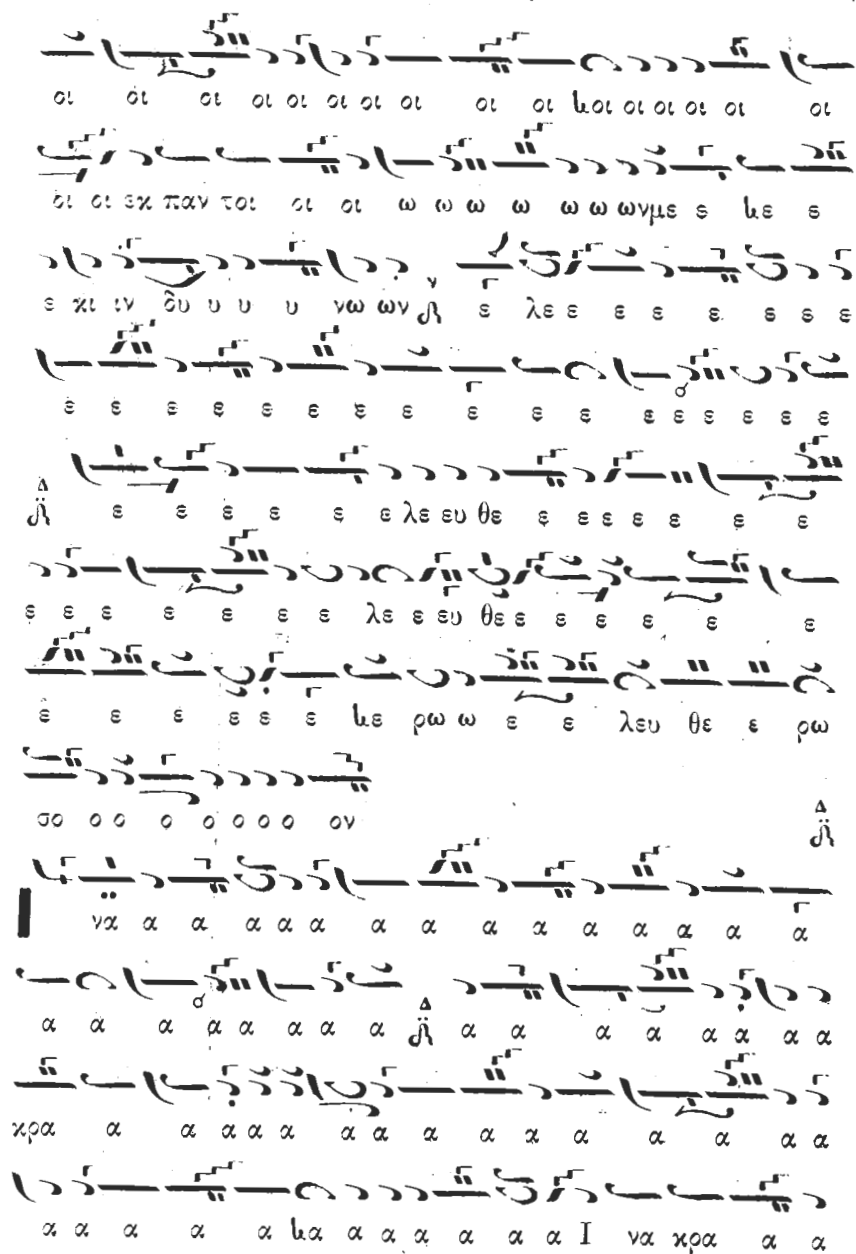 οι οι οι οι οι οι οι οι οι οι ϗοι οι οι οι οι οι
οι οι εκ παν τοι οι οι ω ω ω ω ω ω ωνμε ε ϗε ε
ε κι ιν δυ υ υ υ νω ων ε λε ε ε ε ε ε ε ε
ε ε ε ε ε ε ε ε ε ε ε ε ε ε ε ε ε
Δ ε ε ε ε ε ε λε ευ θε ε ε ε ε ε ε ε
ε ε ε ε ε ε ε λε ε ευ θε ε ε ε ε ε ε
ε ε ε ε ε ε ϗε ρω ω ε ε λευ θε ε ρω
σο ο ο ο ο ο ο ο ον Δ
να α α α α α α α α α α α α α α
α α α α α α α α Δ α α α α α α α α
κρα α α α α α α α α α α α α α α α
α α α α α ϗα α α α α α α Ι να κρα α α